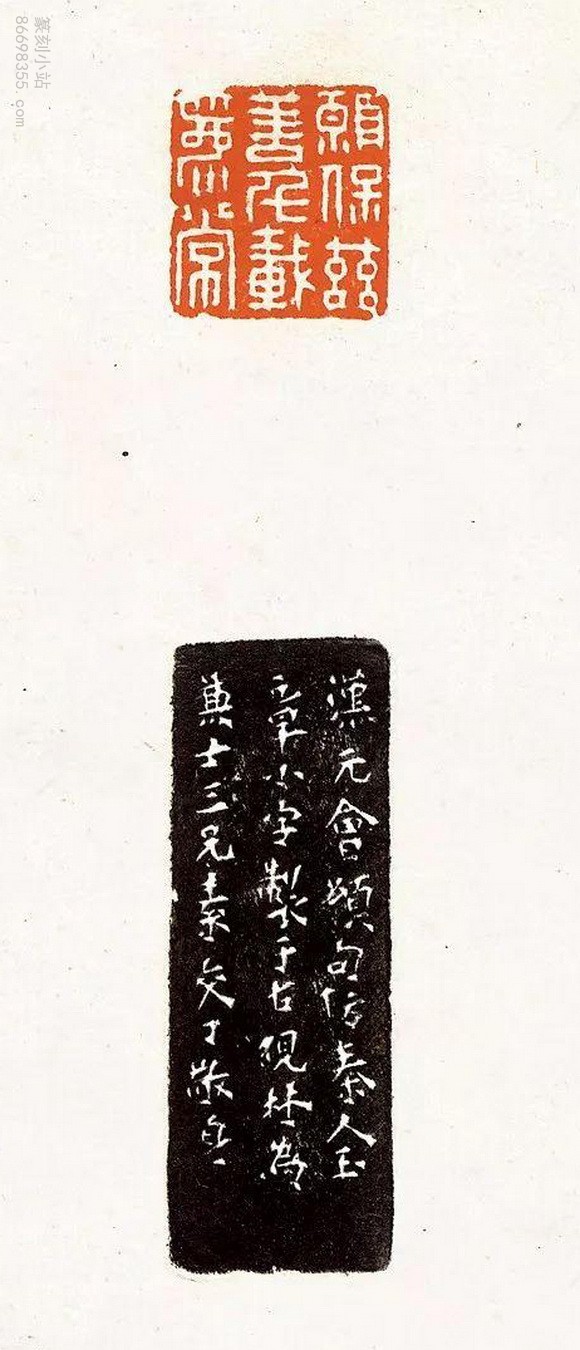 篆刻小站
86698355.com
願保茲
善千載
為常
漢元會頌句仿秦人玉
章小字製于古硯林為
士三兄素交丁敬身